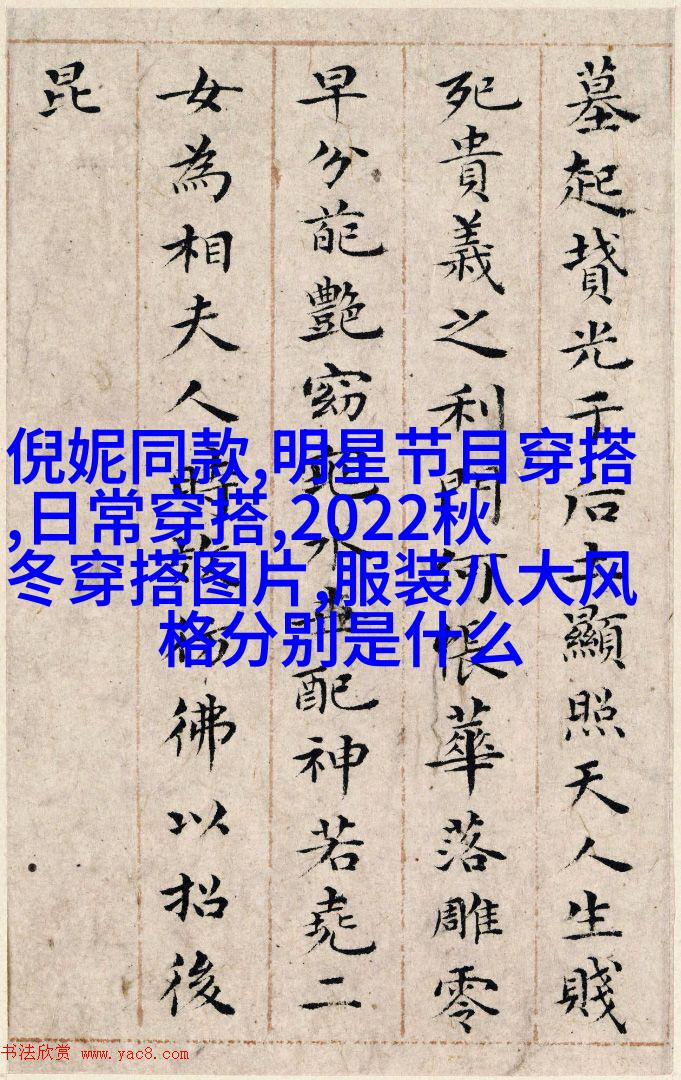 倪妮同款,明星节目穿搭
,日常穿搭,2022秋
冬穿搭图片,服装八大风
格分别是什么
墓起墳光于后土顯照天人生賤
死貴義之利門何悵華落雕零
早分葩艷窈窕永世配神若堯二
女為相夫人時效仿佛以招後
昆
书法欣赏 www.yac8.com